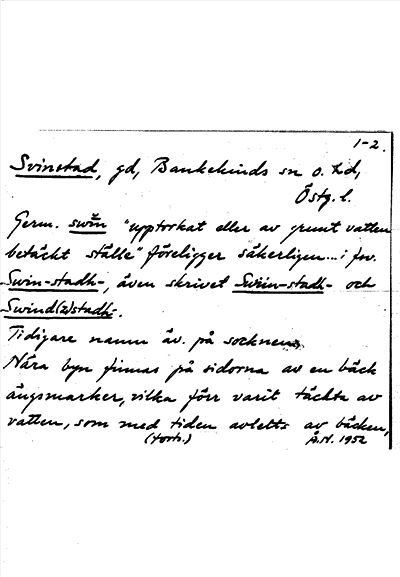 1-2.
Svinstad, gd, Bankekinds sn o. hd,
Östg. l.
Germ. swīn "upptorkat eller av grunt vatten
betäckt ställe" föreligger säkerligen... i fsv.
Swin-stadh-, även skrivet Swiin-stadh- och
Swind(z)stadh-.
Tidigare namn äv. på socknen.
Nära byn finnas på sidorna av en bäck
ängsmarker, vilka förr varit täckta av
vatten, som med tiden avletts av bäcken,
(forts.) Å.N. 1952